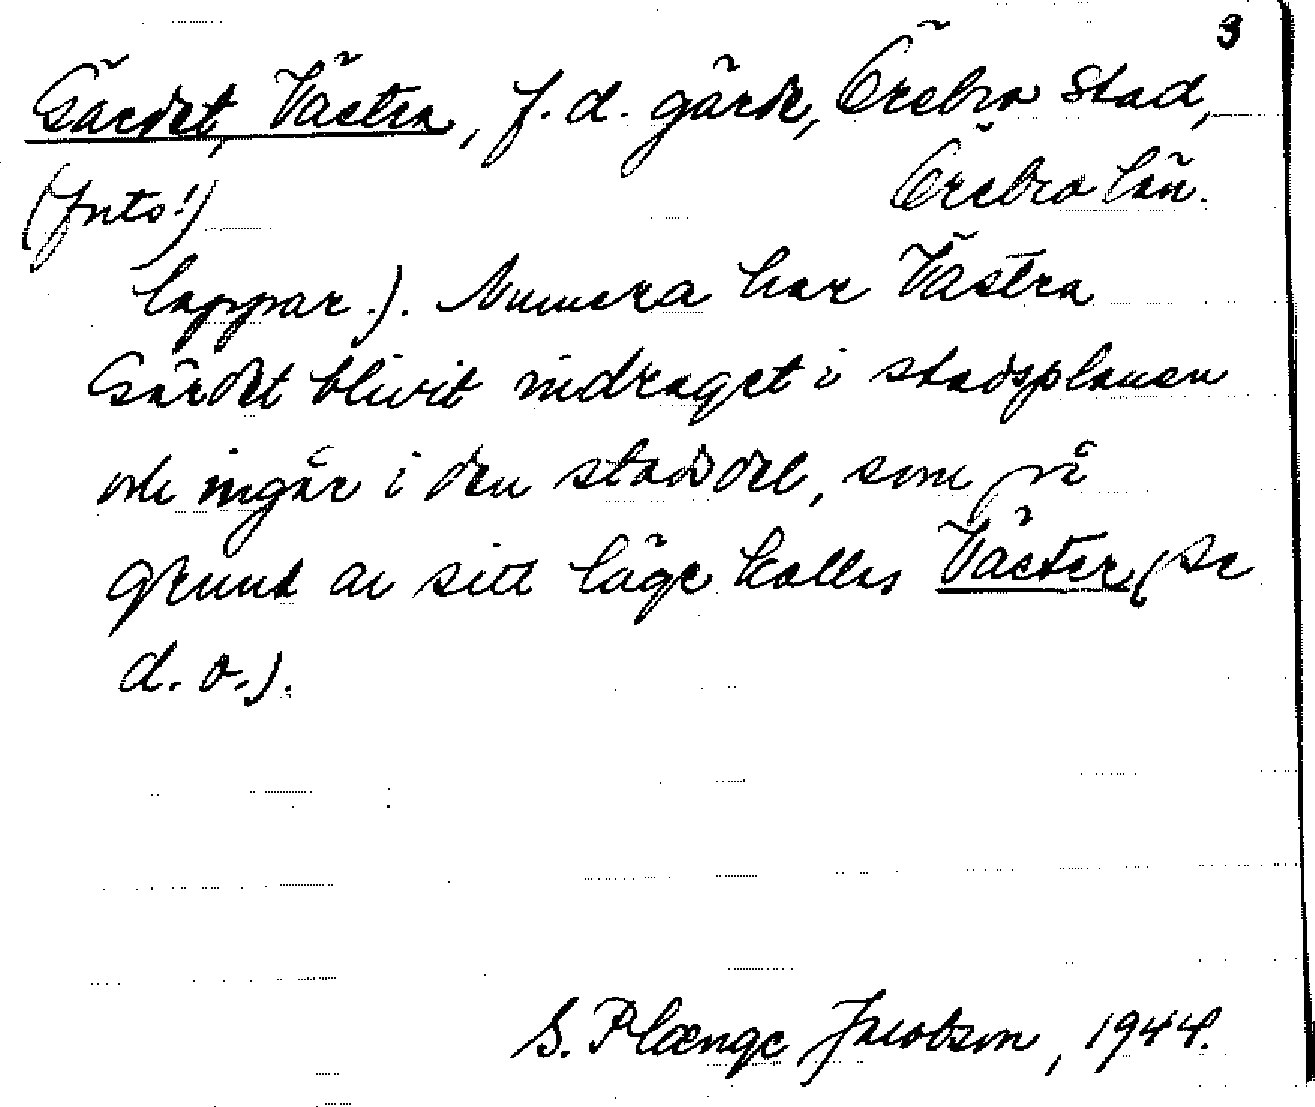 3
Gärdet, Västra, f. d. gärde, Örebro stad,
(forts.) Örebro län.
lappar.). Numera har Västra
Gärdet blivit indraget i stadsplanen
och ingår i den stadsdel, som på
grund av sitt läge kallas Väster (se
d. o.).
S. Plænge Jacobson, 1944.